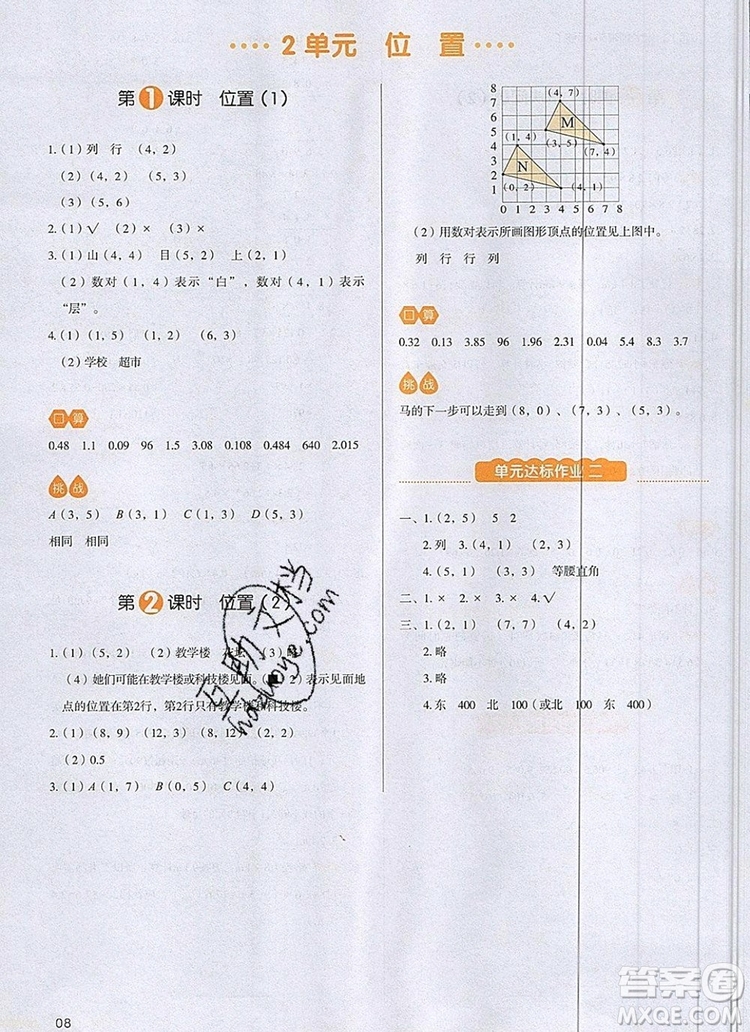 2单元 位 置
第1课时 位置(1)
1.(1)列 行 (4,2)
(2)(4,2) (5,3)
(3)(5,6)
2.(1)√ (2)× (3)×
3.(1)山(4,4) 目(5,2) 上(2,1)
(2)数对(1,4)表示“白”,数对(4,1)表示
“层”。
4.(1)(1,5) (1,2) (6,3)
(2)学校 超市
口算
0.48 1.1 0.09 96 1.5 3.08 0.108 0.484 640 2.015
挑战
A(3,5) B(3,1) C(1,3) D(5,3)
相同 相同
第2课时 位置(2)
1.(1)(5,2) (2)教学楼 花坛 (3)略
(4)她们可能在教学楼或科技楼见面。(■,2)表示见面地
点的位置在第2行,第2行只有教学楼和科技楼。
2.(1)(8,9) (12,2) (8,2) (2,2)
(2)0.5
3.(1)A(1,7) B(0,5) C(4,4)
08
8
7
6
5
4
3
2
1
(4,7)
M
(1,4)
(3,5)
(7,4)
N
(0,2)
(4,1)
0 1 2 3 4 5 6 7 8
(2)用数对表示所画图形顶点的位置见上图中。
列 行 行 列
口算
0.32 0.13 3.85 96 1.96 2.31 0.04 5.4 8.3 3.7
挑战
马的下一步可以走到(8,0)、(7,3)、(5,3)。
单元达标作业 二
一、1.(2,5) 5 2
2.列 3.(4,1) (2,3)
4.(5,1) (3,3) 等腰直角
二、1.× 2.× 3.× 4.√
三、1.(2,1) (7,7) (4,2)
2.略
3.略
4.东 400 北 100(或北 100 东 400)
互助文档
hdzuoye.com
答案圈
MXQE.COM